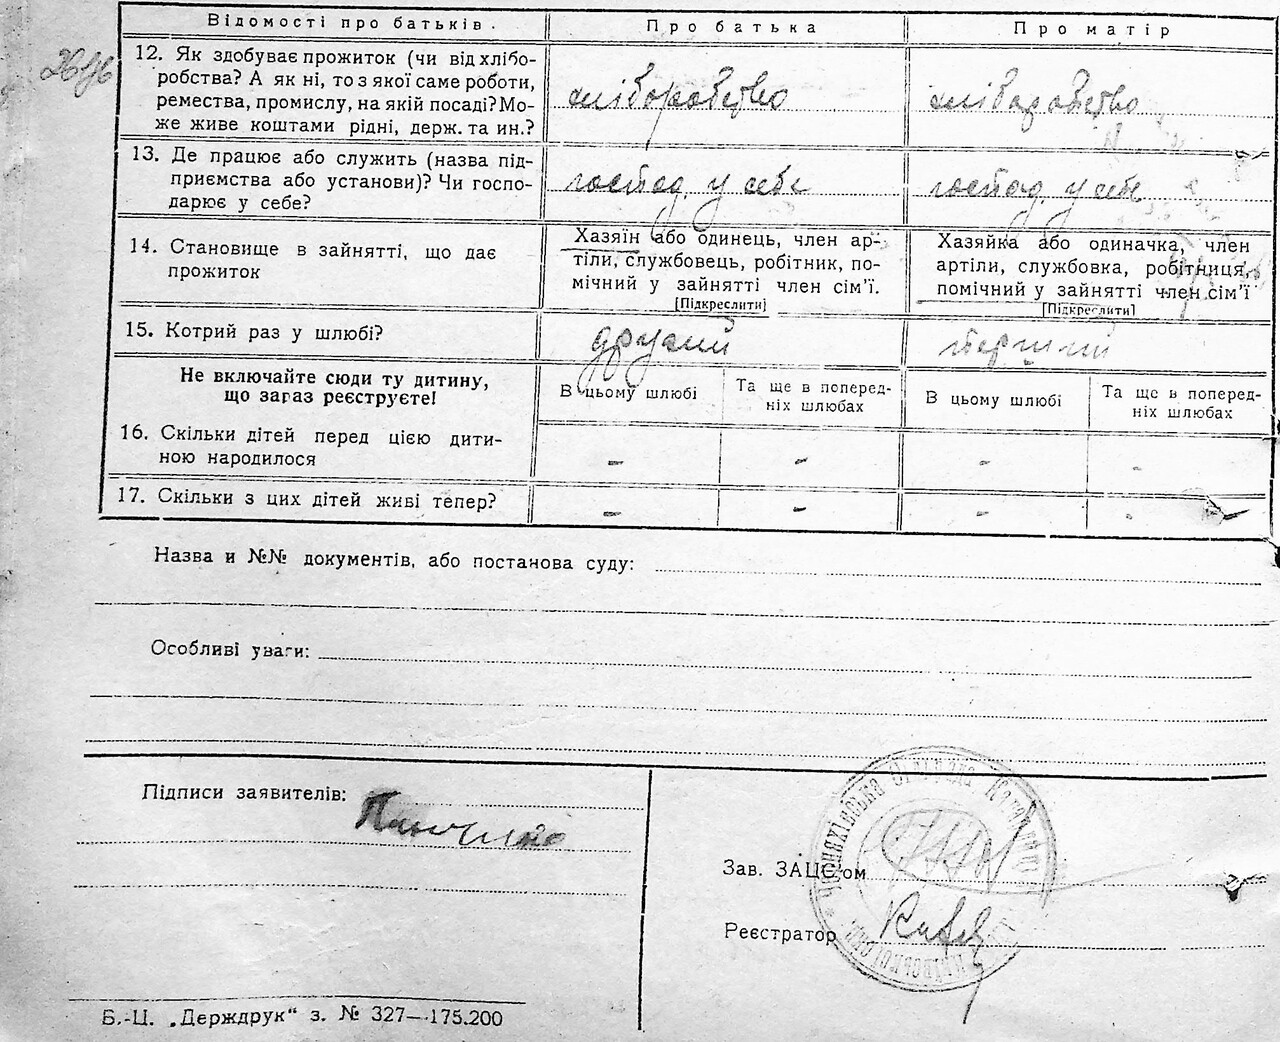 Відомості про батьків. Про батька Про матір
12. Як здобуває прожиток (чи від хлібо-
робства? А як ні, то з якої саме роботи,
ремества, промислу, на якій посаді? Мо-
же живе коштами рідні, держ. та ин.?
хліборобство хліборобство
13. Де працює або служить (назва під-
приємства або установи)? Чи госпо-
дарює у себе?
господ. у себе господ. у себе
14. Становище в зайнятті, що дає
прожиток
Хазяїн або одинець, член ар-
тіли, службовець, робітник, по-
мічний у зайнятті член сім'ї.
[Підкреслити]
Хазяйка або одиначка, член
артіли, службовка, робітниця,
помічний у зайнятті член сім'ї
[Підкреслити]
15. Котрий раз у шлюбі? другий перший
Не включайте сюди ту дитину,
що зараз реєструєте!
В цьому шлюбі
Та ще в поперед-
ніх шлюбах
В цьому шлюбі
Та ще в поперед-
ніх шлюбах
16. Скільки дітей перед цією дити-
ною народилося
- - - -
17. Скільки з цих дітей живі тепер?
- - - -
Назва и №№ документів, або постанова суду:
Особливі уваги:
Підписи заявителів:
Зав. ЗАЦС'ом
Реєстратор
Б.-Ц. „Держдрук“ з. № 327—175.200